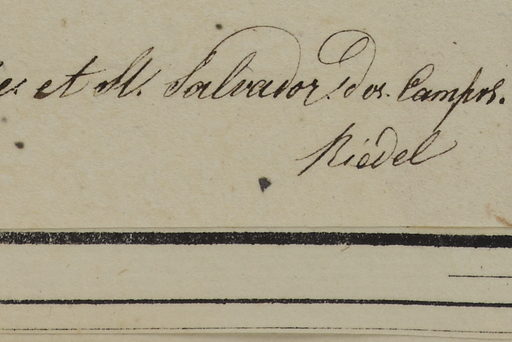 e. et St. Salvador. dos. Campos.
Riedel